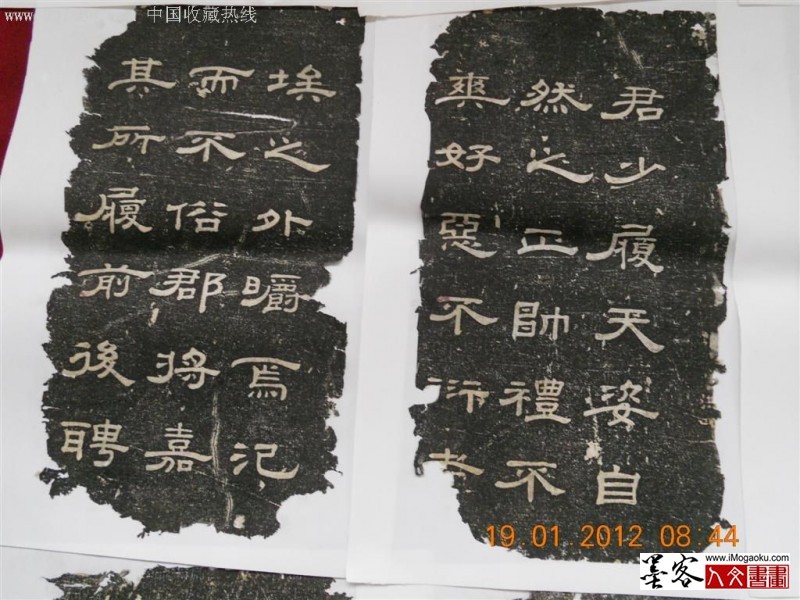 www.
中国收藏热线
君少履天姿自
然之正帥禮不
爽好惡不
埃之外皭焉氾
而不俗郡將嘉
其所履前後聘
19 01 2012 08 44
墨客
www.iMogaoku.com
人文書畫